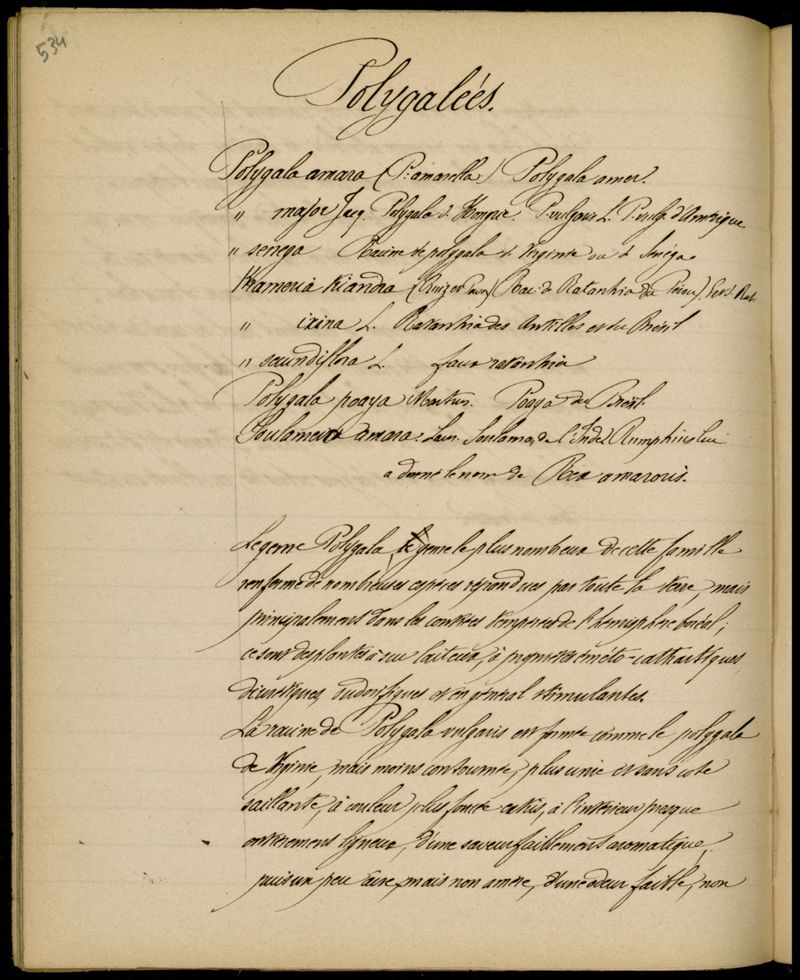 534
Polygaleés.
Polygala amara (P. amarella) Polygala amer.
" major Jacq. Polygala de Hongrie. P. vulgaris L. P. vulg. d'Amérique
" senega Racine de polygala de Virginie ou de Sénéga
Krameria triandra (Ruiz et Pavon) Rac. de Ratanhia du Pérou
" ixina L. Ratanhia des Antilles et du Brésil
" secundiflora L. faux ratanhia
Polygala poaya Martius. Poaya du Brésil.
Soulamea amara. Lam. Soulamea de l'Inde. Rumphius lui
a donné le nom de Rex amaroris.
Le genre Polygala, le genre le plus nombreux de cette famille
renferme de nombreuses espèces répandues par toute la terre, mais
principalement dans les contrées tempérées de l'hémisphère boréal;
ce sont des plantes à suc laiteux, à propriétés éméto-cathartiques,
diurétiques, sudorifiques et en général stimulantes.
La racine de Polygala vulgaris est formée comme le polygala
de Virginie, mais moins contournée, plus unie et sans cote
saillante, à couleur plus foncée, à l'intérieur presque
entièrement ligneux, d'une saveur faiblement aromatique,
puis un peu âcre, mais non amère, d'une odeur faible, non